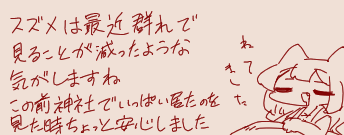 スズメは最近群れで
見ることが減ったような
気がしますね
この前神社でいっぱい居たのを
見た時ちょっと安心しました
ねてきた